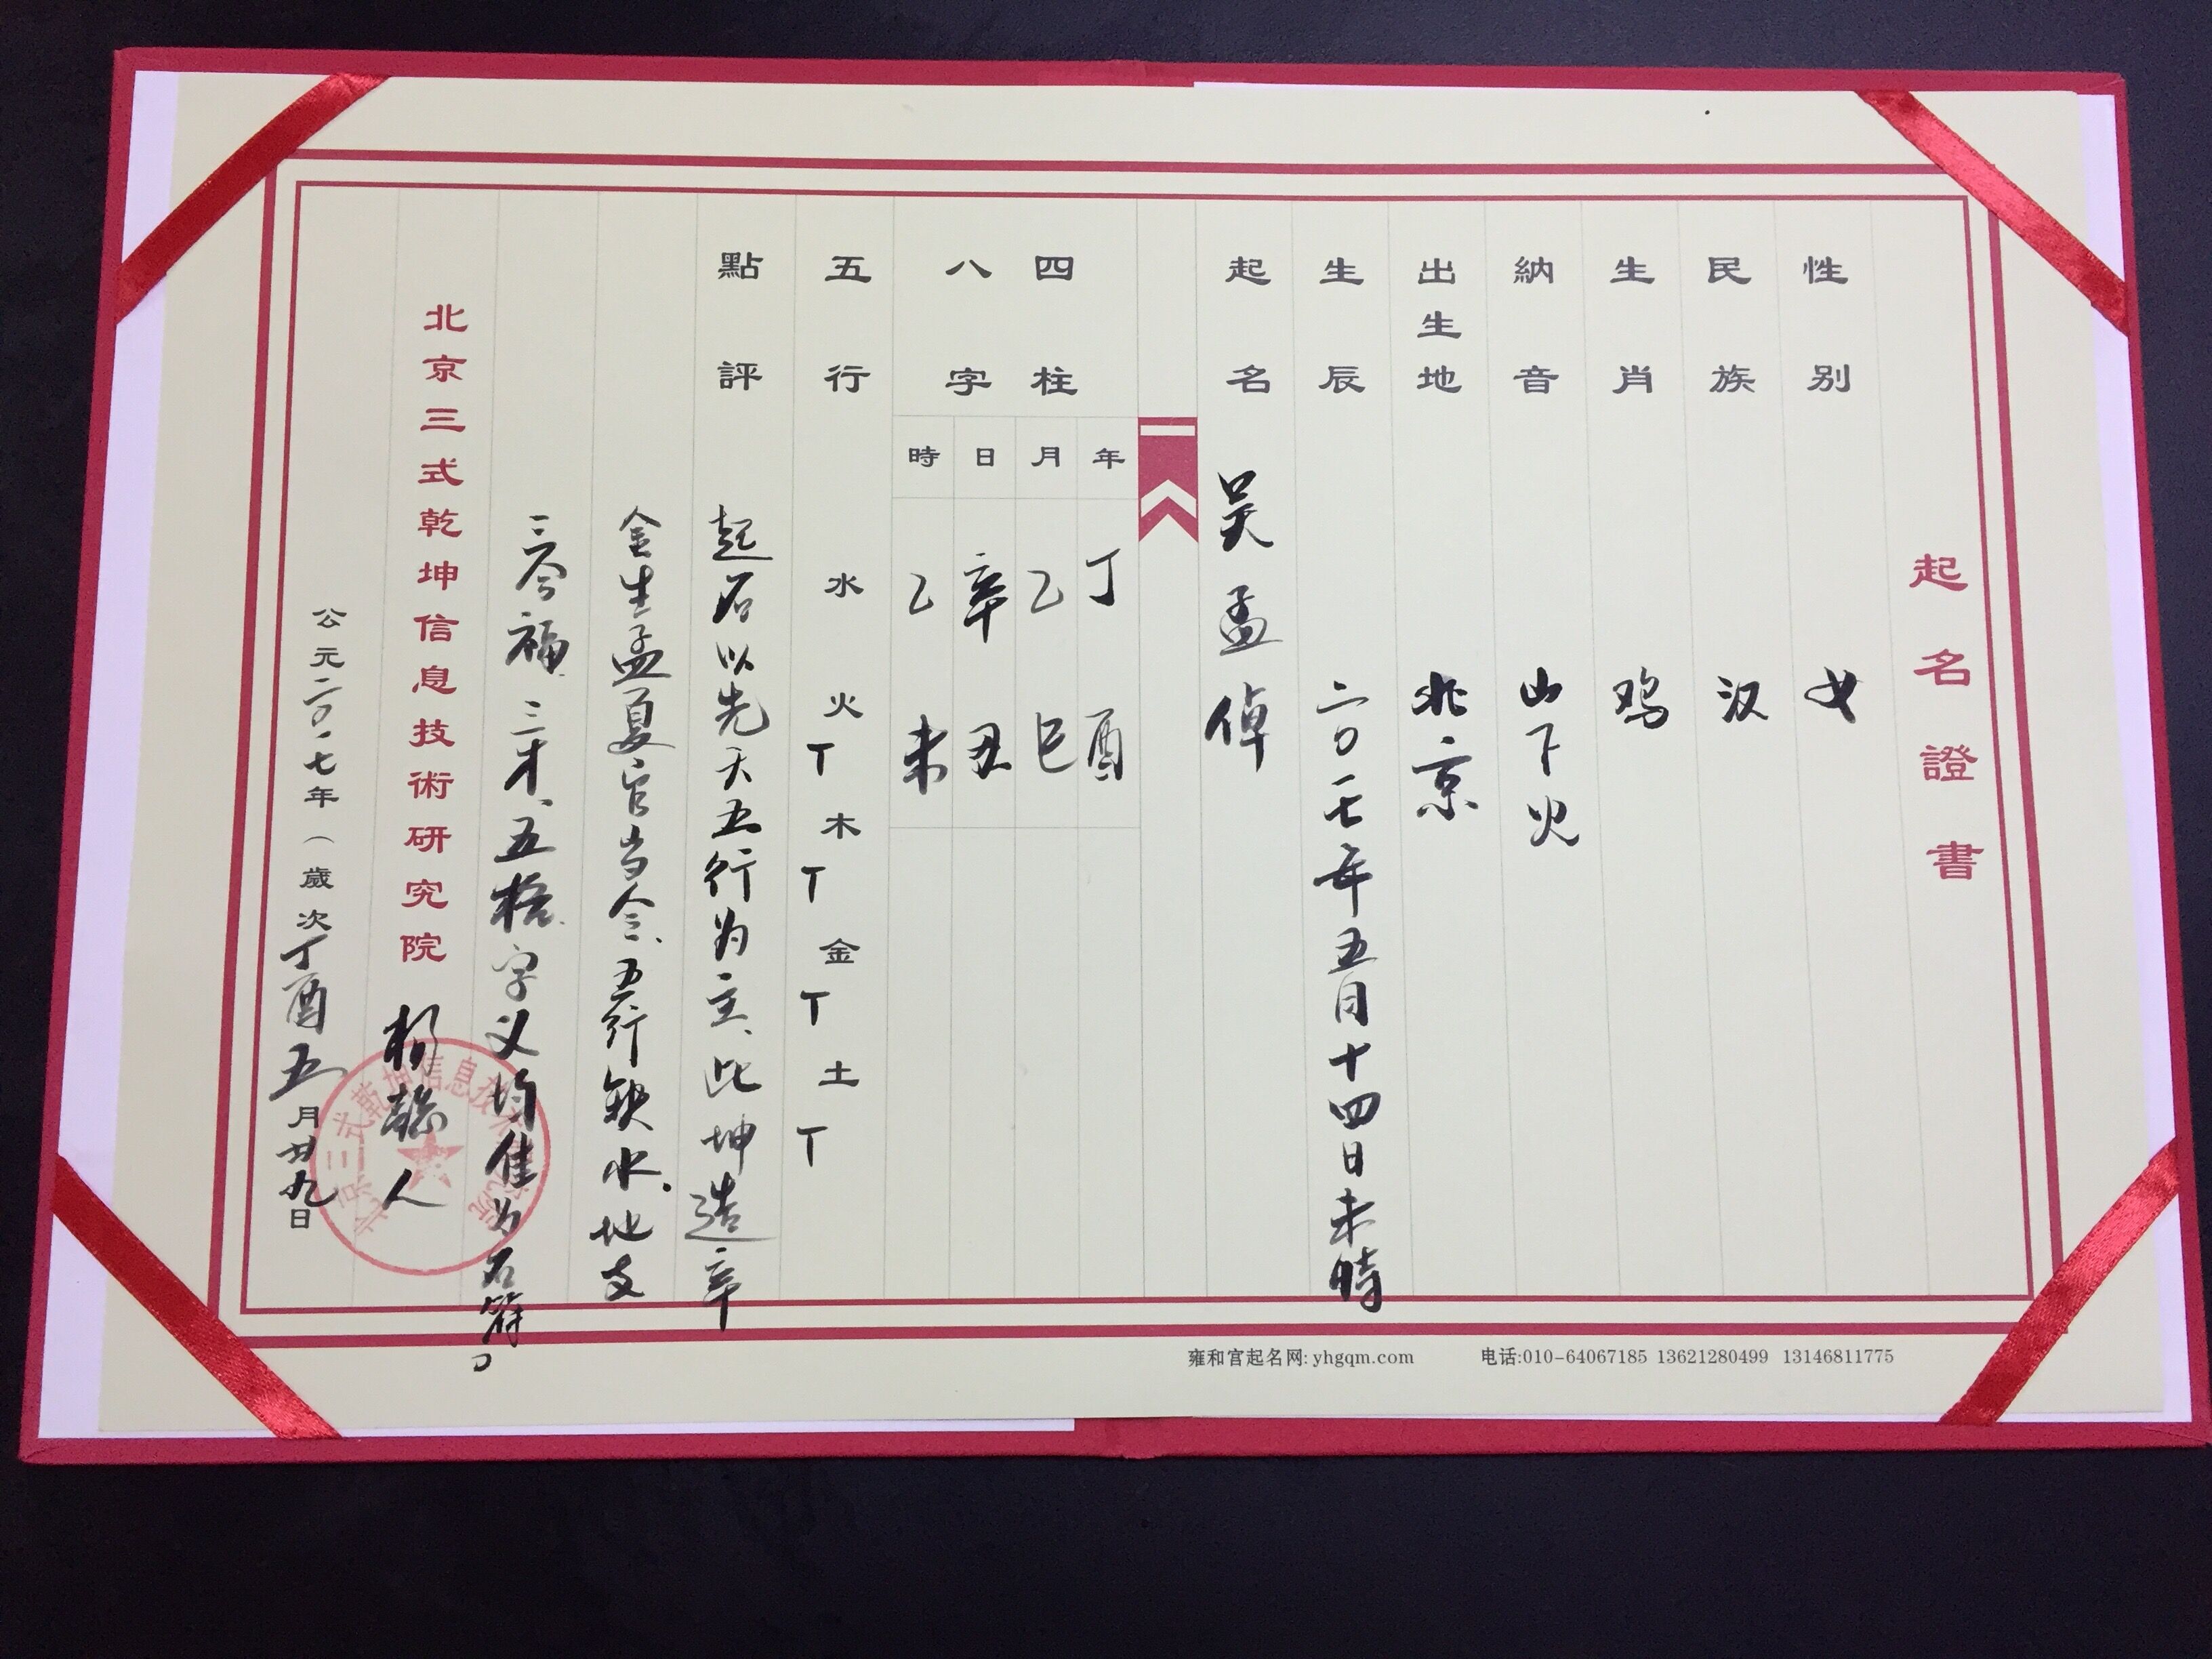 起名證書
性别 女
民族 汉
生肖 鸡
納音 山下火
出生地 北京
生辰 二〇一七年五月十四日未時
起名 吴孟倬
四柱八字
年 丁酉
月 乙巳
日 辛丑
時 乙未
五行 水 火T 木T 金T 土T
點評 起名以先天五行为主、此坤造辛
金生孟夏官当令、五行缺水.地支
三合福.三才、五格.字义均佳为名符
北京三式乾坤信息技術研究院 杨 人
公元二〇一七年(歲次丁酉五月廿九日
北京三式乾坤信息技术研究院
雍和宫起名网: yhgqm.com 电话:010-64067185 13621280499 13146811775